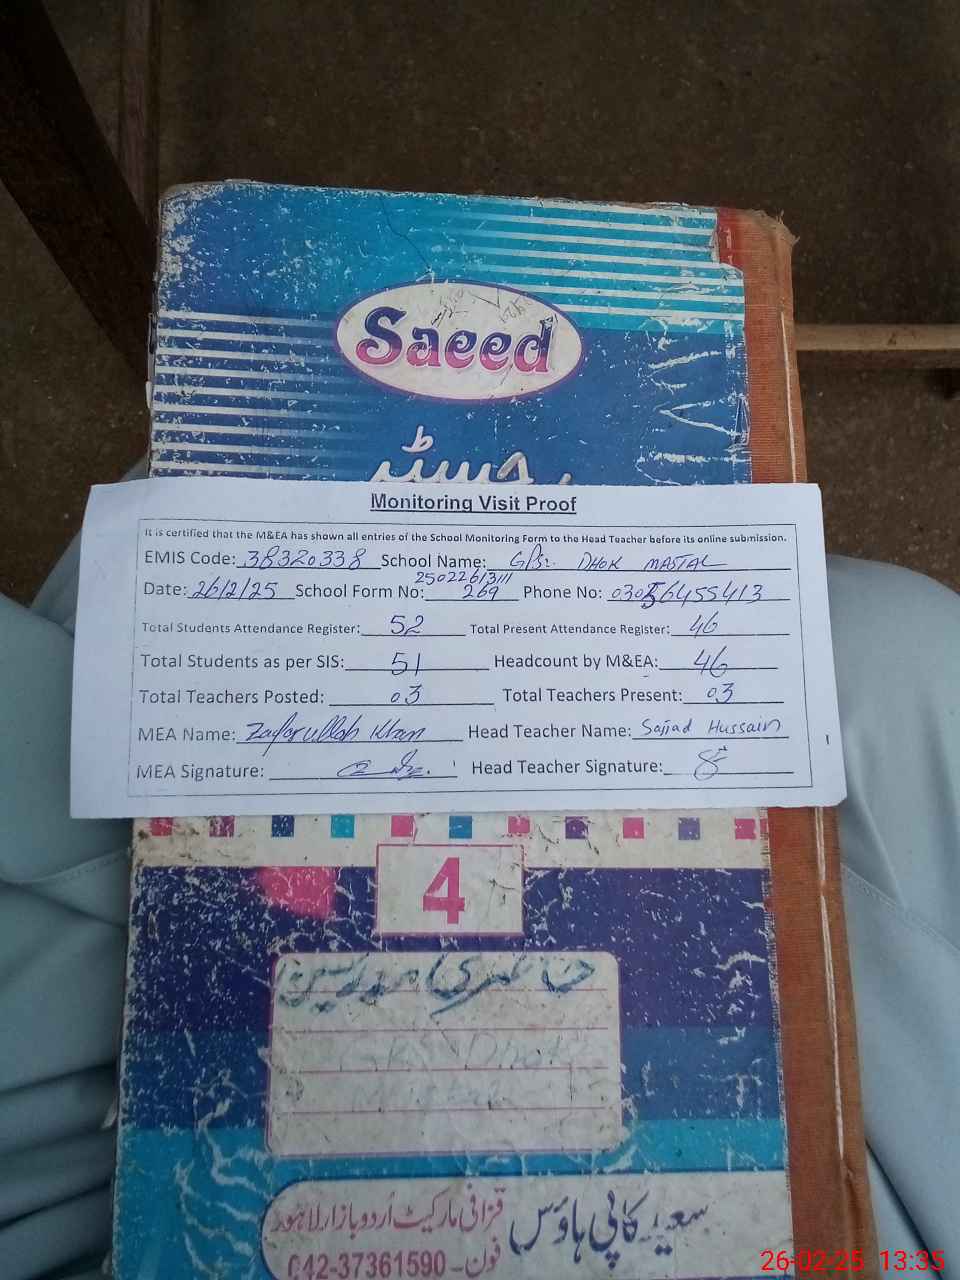 Saeed
رجسٹر
Monitoring Visit Proof
It is certified that the M&EA has shown all entries of the School Monitoring Form to the Head Teacher before its online submission.
EMIS Code: 38320338 School Name: GPS. DHOK MASTAL
Date: 26/2/25 School Form No: 25022613111 269 Phone No: 03056455413
Total Students Attendance Register: 52 Total Present Attendance Register: 46
Total Students as per SIS: 51 Headcount by M&EA: 46
Total Teachers Posted: 03 Total Teachers Present: 03
MEA Name: Zafarullah Khan Head Teacher Name: Sajjad Hussain
MEA Signature: Head Teacher Signature:
4
حاضری مدرسین
GPS Dhok
Mastal
سعید کاپی ہاؤس قذافی مارکیٹ اُردو بازار لاہور
فون-042-37361590
26-02-25 13:35